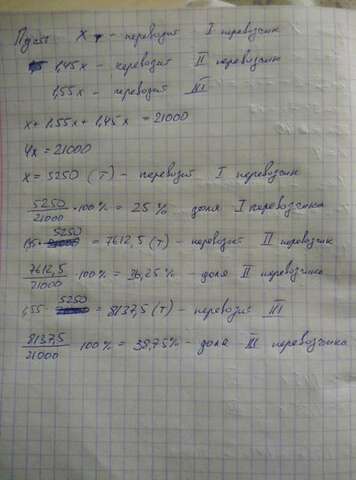 Пусть x - перевозит I перевозчик
1,45x - перевозит II перевозчик
1,55x - перевозит III
x + 1.55x + 1,45x = 21000
4x = 21000
x = 5250 (т) - перевозит I перевозчик
5250/21000 · 100% = 25% доля I перевозчика
1,45 · 5250 = 7612,5 (т) - перевозит II перевозчик
7612,5/21000 · 100% = 36,25% - доля II перевозчика
1,55 · 5250 = 8137,5 (т) - перевозит III
8137,5/21000 · 100% = 38,75% - доля III перевозчика